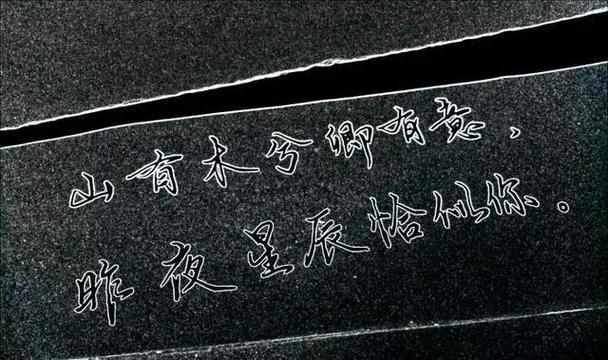 山有木兮卿有意，
昨夜星辰恰似你。